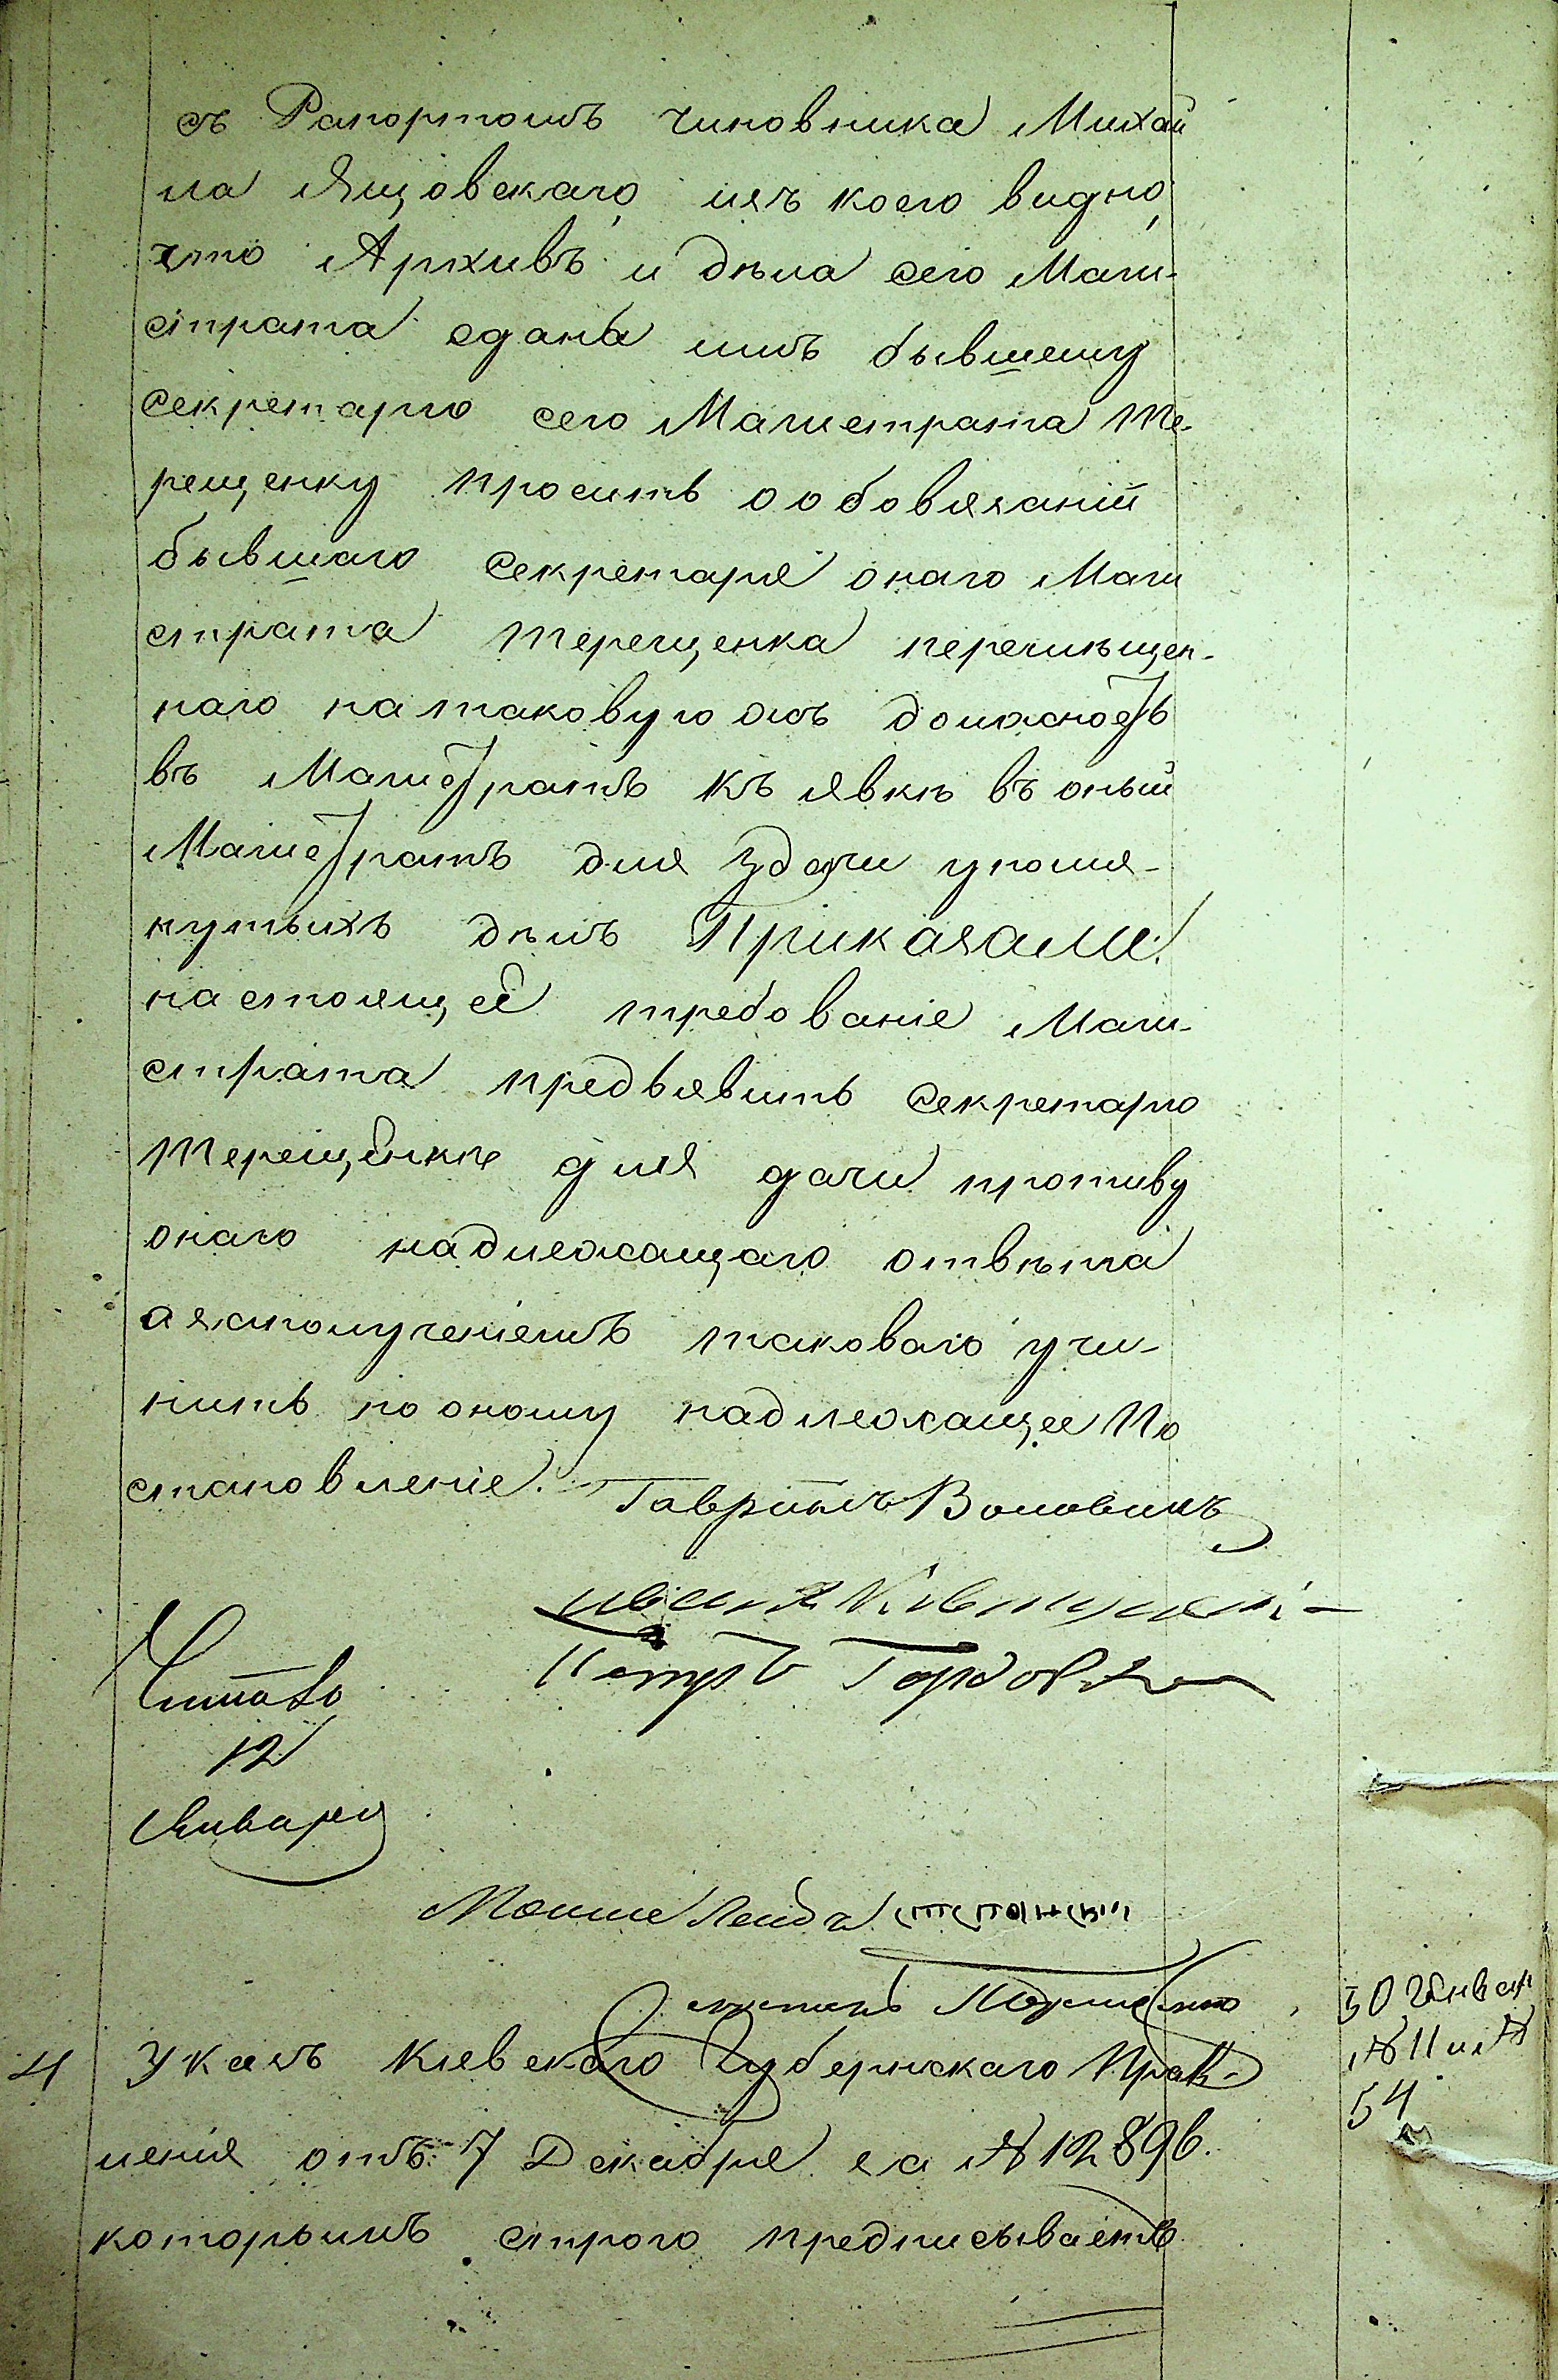 съ Рапортомъ чиновника Михай
ла Ящовскаго, изъ коего видно,
что Архивъ и дѣла сего Маги-
страта сданы имъ бывшему
секретарю сего Магистрата Те-
рещенку проситъ о обовязаніи
бывшаго Секретаря онаго Маги
страта Терещенка перемѣщен-
наго на таковую жъ должность
въ Магистратъ къ явкѣ въ оный
Магистратъ для здачи упомя-
нутыхъ дѣлъ Приказали:
настоящее требованіе Маги-
страта предъявить Секретарю
Терещенкѣ для дачи противу
онаго надлежащаго отвѣта
а заполученіемъ таковаго учи-
нить по оному надлежащее По
становленіе. Гаврыилъ Воловикъ
Петръ Гордов
Читалъ
12
Января
Мошие Лейбъ
4 Указъ Кіевскаго Губернскаго Прав-
ленія отъ 7 Декабря за № 12896.
которымъ строго предписываетъ
30 Январ
№ 11 и №
54